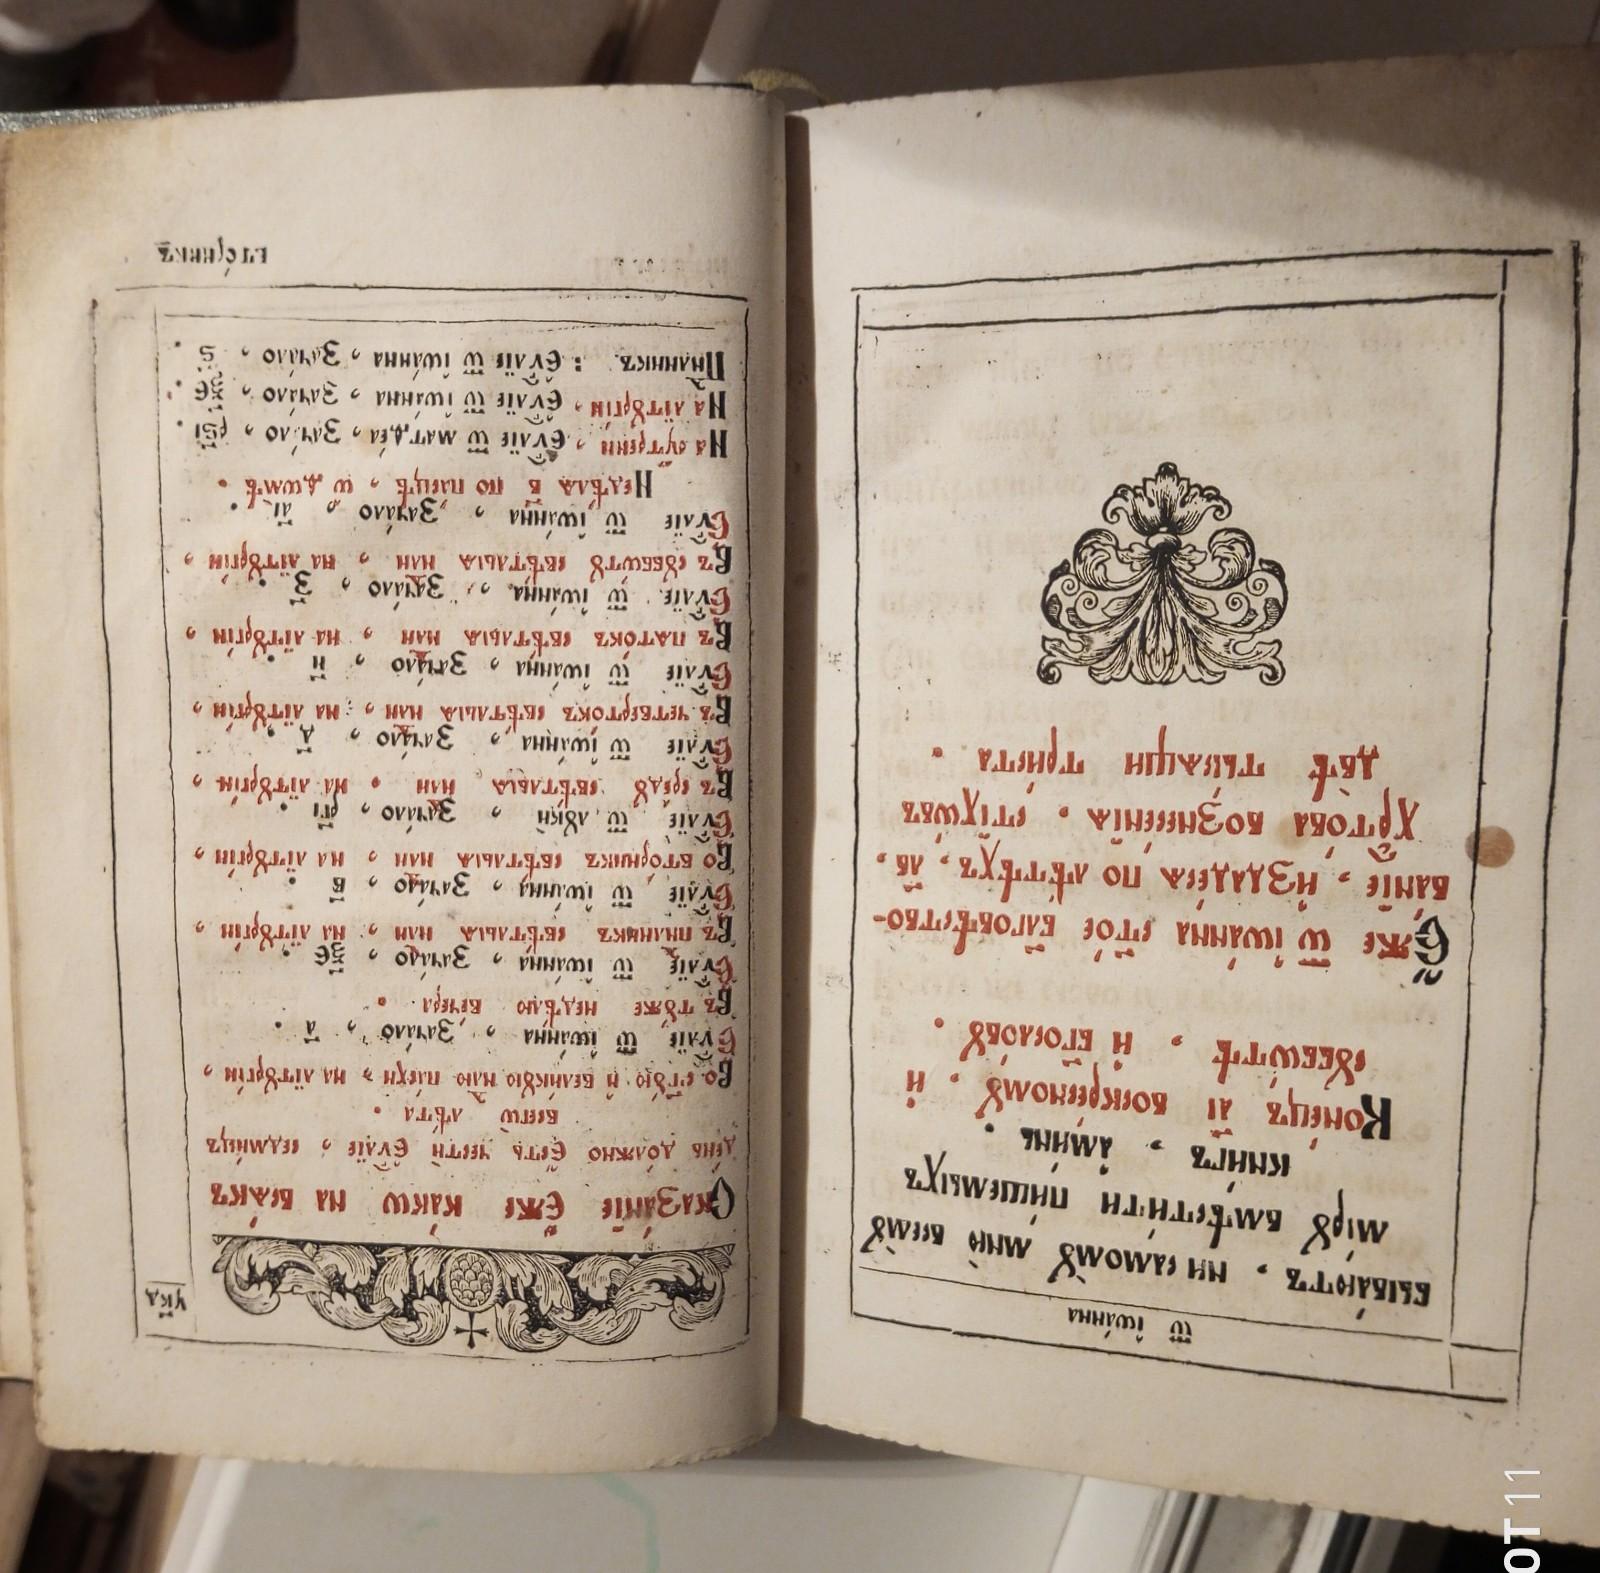 ѿ і҆ѡа́нна
быва́ютъ , ни самомꙋ̀ мню̀ всемꙋ̀
мі́рꙋ вмѣсти́ти пи́шемыхъ
кни́гъ , а҆ми́нь .
Коне́цъ а҃і воскре́сномꙋ , и҆
сꙋббѡ́тѣ , и҆ бг҃осло́вꙋ .
Є҆́же ѿ і҆ѡа́нна ст҃о́е бл҃говѣ́ство-
ва́нїе , и҆зда́десѧ по лѣ́тѣхъ , л҃в ,
хр҃то́ва вознесе́нїѧ , стїхѡ́въ
двѣ̀ ты́сѧщи три́ста .
ук҃д
Сказа́нїе є҆́же ка́кѡ на всѧ́къ
де́нь до́лжно є҆́сть честѝ є҆ѵⷢ҇лїе , седми́цъ
всегѡ̀ лѣ́та .
Во ст҃ꙋ́ю и҆ вели́кꙋю нⷣлю па́схи , на лїтꙋргі́и ,
Є҆ѵⷢ҇лїе ѿ і҆ѡа́нна , зача́ло , а҃ .
Въ тꙋ́же недѣ́лю ве́чера .
Є҆ѵⷢ҇лїе ѿ і҆ѡа́нна , зача́ло , ѯ҃є .
Въ пнⷣлникъ свѣ́тлыѧ нⷣли , на лїтꙋргі́и ,
Є҆ѵⷢ҇лїе ѿ і҆ѡа́нна , зача́ло , в҃ .
Во вто́рникъ свѣ́тлыѧ нⷣли , на лїтꙋргі́и ,
Є҆ѵⷢ҇лїе ѿ лꙋкѝ , зача́ло , рг҃і .
Въ средꙋ̀ свѣ́тлыѧ нⷣли , на лїтꙋргі́и ,
Є҆ѵⷢ҇лїе ѿ і҆ѡа́нна , зача́ло , д҃ .
Въ четверто́къ свѣ́тлыѧ нⷣли , на лїтꙋргі́и ,
Є҆ѵⷢ҇лїе ѿ і҆ѡа́нна , зача́ло , и҃ .
Въ пѧто́къ свѣ́тлыѧ нⷣли , на лїтꙋргі́и ,
Є҆ѵⷢ҇лїе ѿ і҆ѡа́нна , зача́ло , з҃ .
Въ сꙋббѡ́тꙋ свѣ́тлыѧ нⷣли , на лїтꙋргі́и ,
Є҆ѵⷢ҇лїе ѿ і҆ѡа́нна , зача́ло , а҃і .
Недѣ́лѧ в҃ по па́сцѣ , ѡ҆ ѳѡмѣ̀ .
На ᲂу҆́трени , є҆ѵⷢ҇лїе ѿ матѳе́а , зача́ло , рѕ҃і .
На лїтꙋргі́и , є҆ѵⷢ҇лїе ѿ і҆ѡа́нна , зача́ло , ѯ҃є .
Пнⷣлникъ : є҆ѵⷢ҇лїе ѿ і҆ѡа́нна , зача́ло , ѕ҃ .
вто́рникъ
ОТ 11